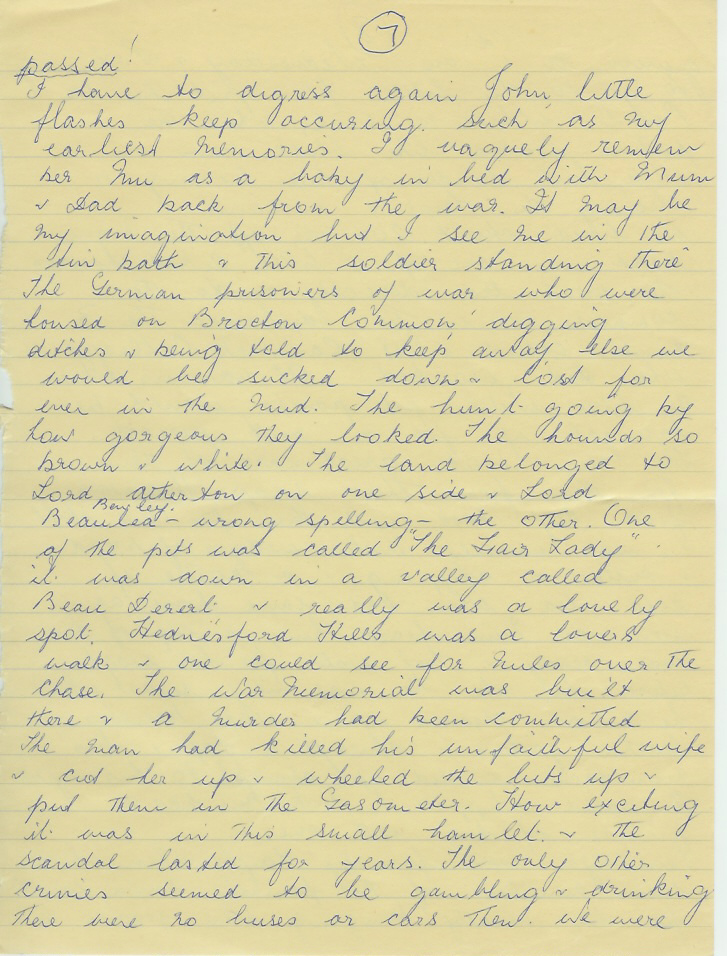 7
passed!
I have to digress again John little
flashes keep occuring. such as my
earliest memories. I vaguely remem
ber Mu as a baby in bed with Mum
& Dad back from the war. It may be
my imagination but I see me in the
tin bath & this soldier standing there
The German prisoners of war who were
housed on Brocton Common digging
ditches & being told to keep away else we
would be sucked down & lost for
ever in the mud. The hunt going by
how gorgeous they looked. The hounds so
brown & white. The land belonged to
Lord atherton on one side & Lord
Bewley.
Beaulea - wrong spelling - the other. One
of the pits was called "The Fair Lady"
it was down in a valley called
Beau Desert & really was a lovely
spot. Hednesford Hills was a lovers
walk & one could see for miles over the
Chase. The War Memorial was built
there & a murder had been committed
The man had killed his unfaithful wife
& cut her up & wheeled the bits up &
put them in the Gasometer. How exciting
it was in this small hamlet. & the
scandal lasted for years. The only other
crimes seemed to be gambling & drinking
There were no buses or cars then. We were